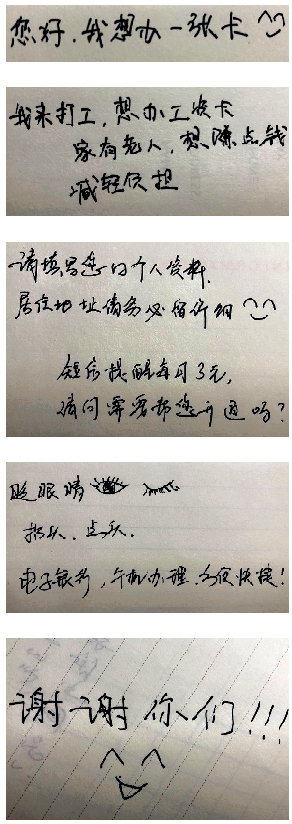 您好.我想办一张卡
我来打工,想办工资卡
家有老人,想赚点钱
减轻负担
请填写您的个人资料.
居住地址请务必留详细
短信提醒每月3元,
请问需要帮您开通吗?
眨眼睛
摇头.点头.
电子银行,午机办理.方便快捷!
谢谢你们!!!